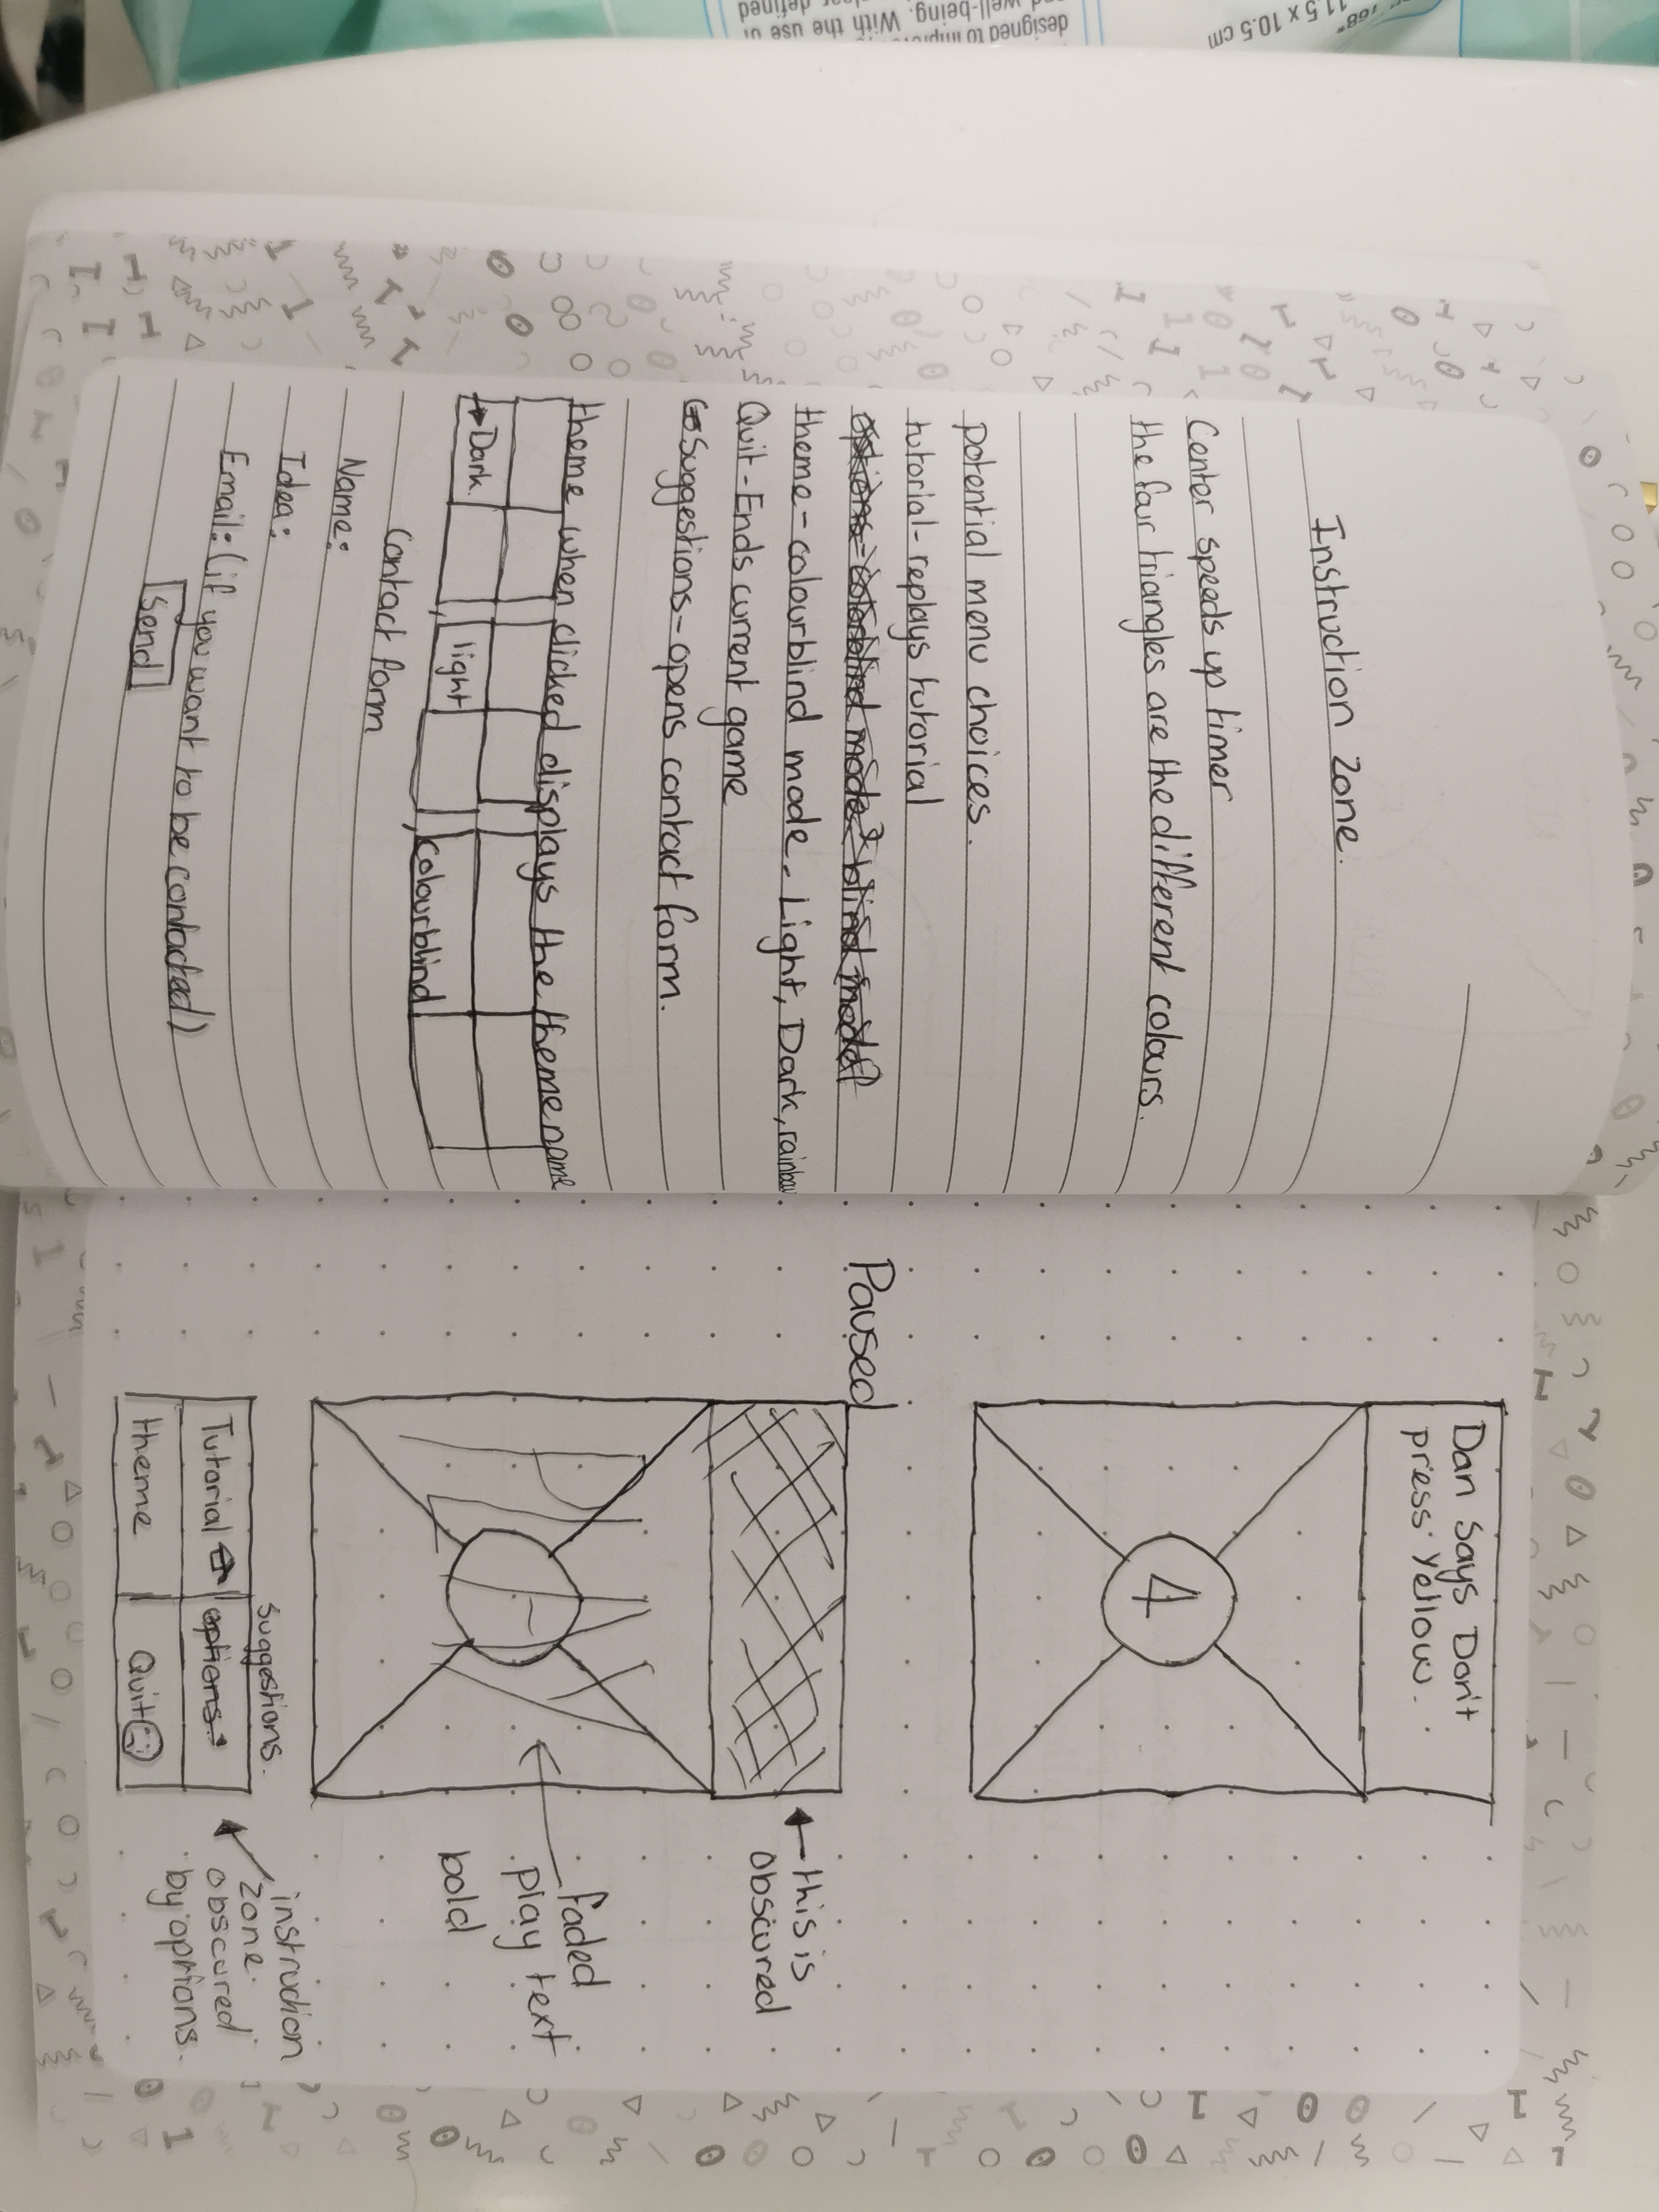 Instruction zone.
Center speeds up timer
the four triangles are the different colours.
potential menu choices.
tutorial - replays tutorial
options - colorblind mode? blind mode?
theme - colourblind mode - Light, Dark, rainbow
Quit - Ends current game
Suggestions - opens contact form.
theme when clicked displays the theme name
Dark
light
colourblind
Contact form
Name:
Idea:
Email: (if you want to be contacted)
Send
Dan Says Don't
press yellow.
4
Paused
← this is
obscured
PLAY
faded
play text
bold
Suggestions.
Tutorial
options
theme
Quit
instruction
zone
obscured
by options.
designed to impro
d well-being. With the use o
defined
11.5 x 10.5 cm